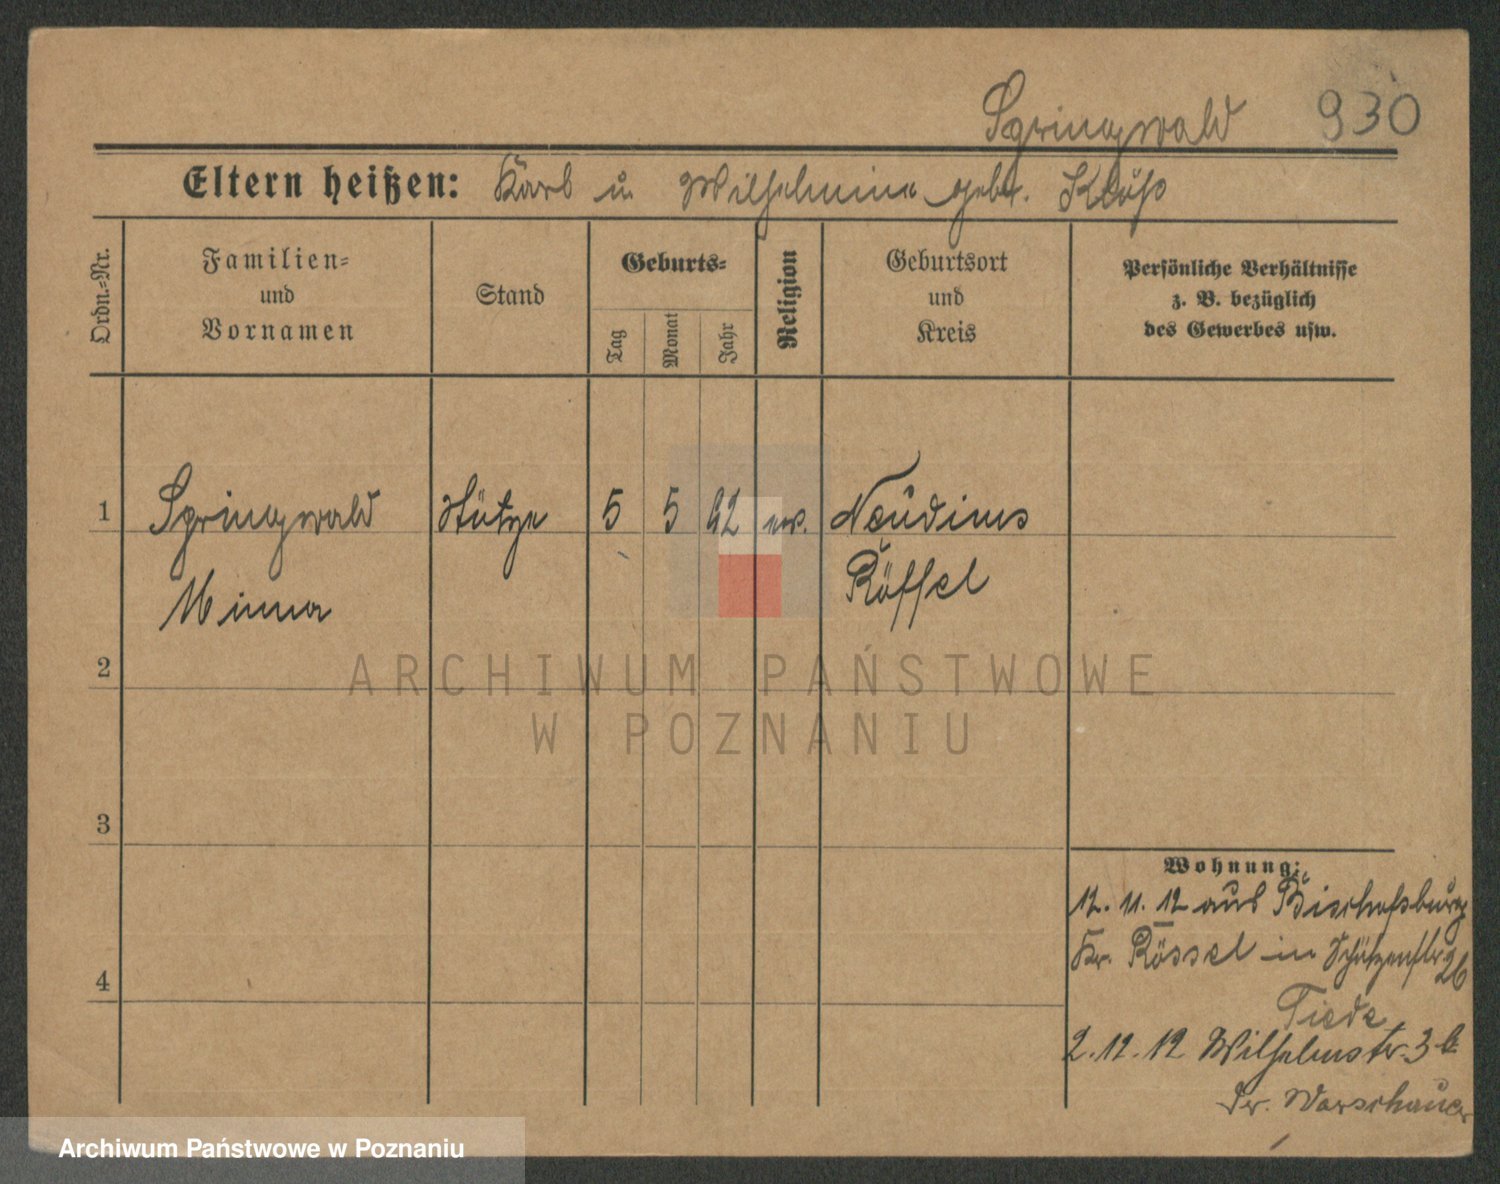 Springwald 930
Eltern heißen: Karl u Wilhelmine gebr.
Ordn.-Nr.
Familien-
und
Vornamen
Stand
Geburts-
Tag
Monat
Jahr
Religion
Geburtsort
und
Kreis
Persönliche Verhältnisse
z. B. bezüglich
des Gewerbes usw.
1 Springwald Stütze 5 5 92 ev. Neudims
Minna Rössel
2
3
4
ARCHIWUM PAŃSTWOWE
W POZNANIU
Wohnung:
12. 11. 12 aus Bischofsburg
Kr. Rössel in Schützenstr 26
Tiede
2. 12. 12 Wilhelmstr. 3 b
Dr. Warschauer
Archiwum Państwowe w Poznaniu